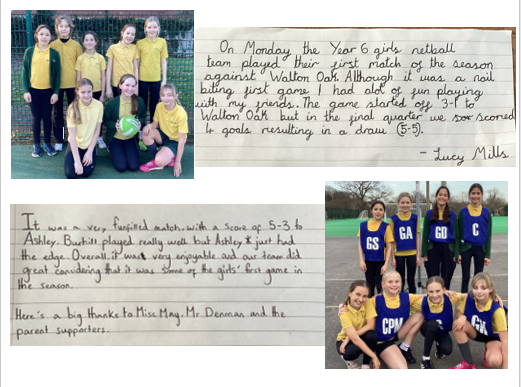 On Monday the Year 6 girls netball
team played their first match of the season
against Walton Oak. Although it was a nail
biting first game I had alot of fun playing
with my friends. The game started off 3-1 to
Walton Oak but in the final quarter we scored
4 goals resulting in a draw (5-5).
- Lucy Mills
It was a very funfilled match, with a score of 5-3 to
Ashley. Burhill played really well but Ashley just had
the edge. Overall, it was very enjoyable and our team did
great considering that it was some of the girls' first game in
the season.
Here's a big thanks to Miss May, Mr. Denman and the
parent supporters.
GS
GA
GD
C
CPM
GK